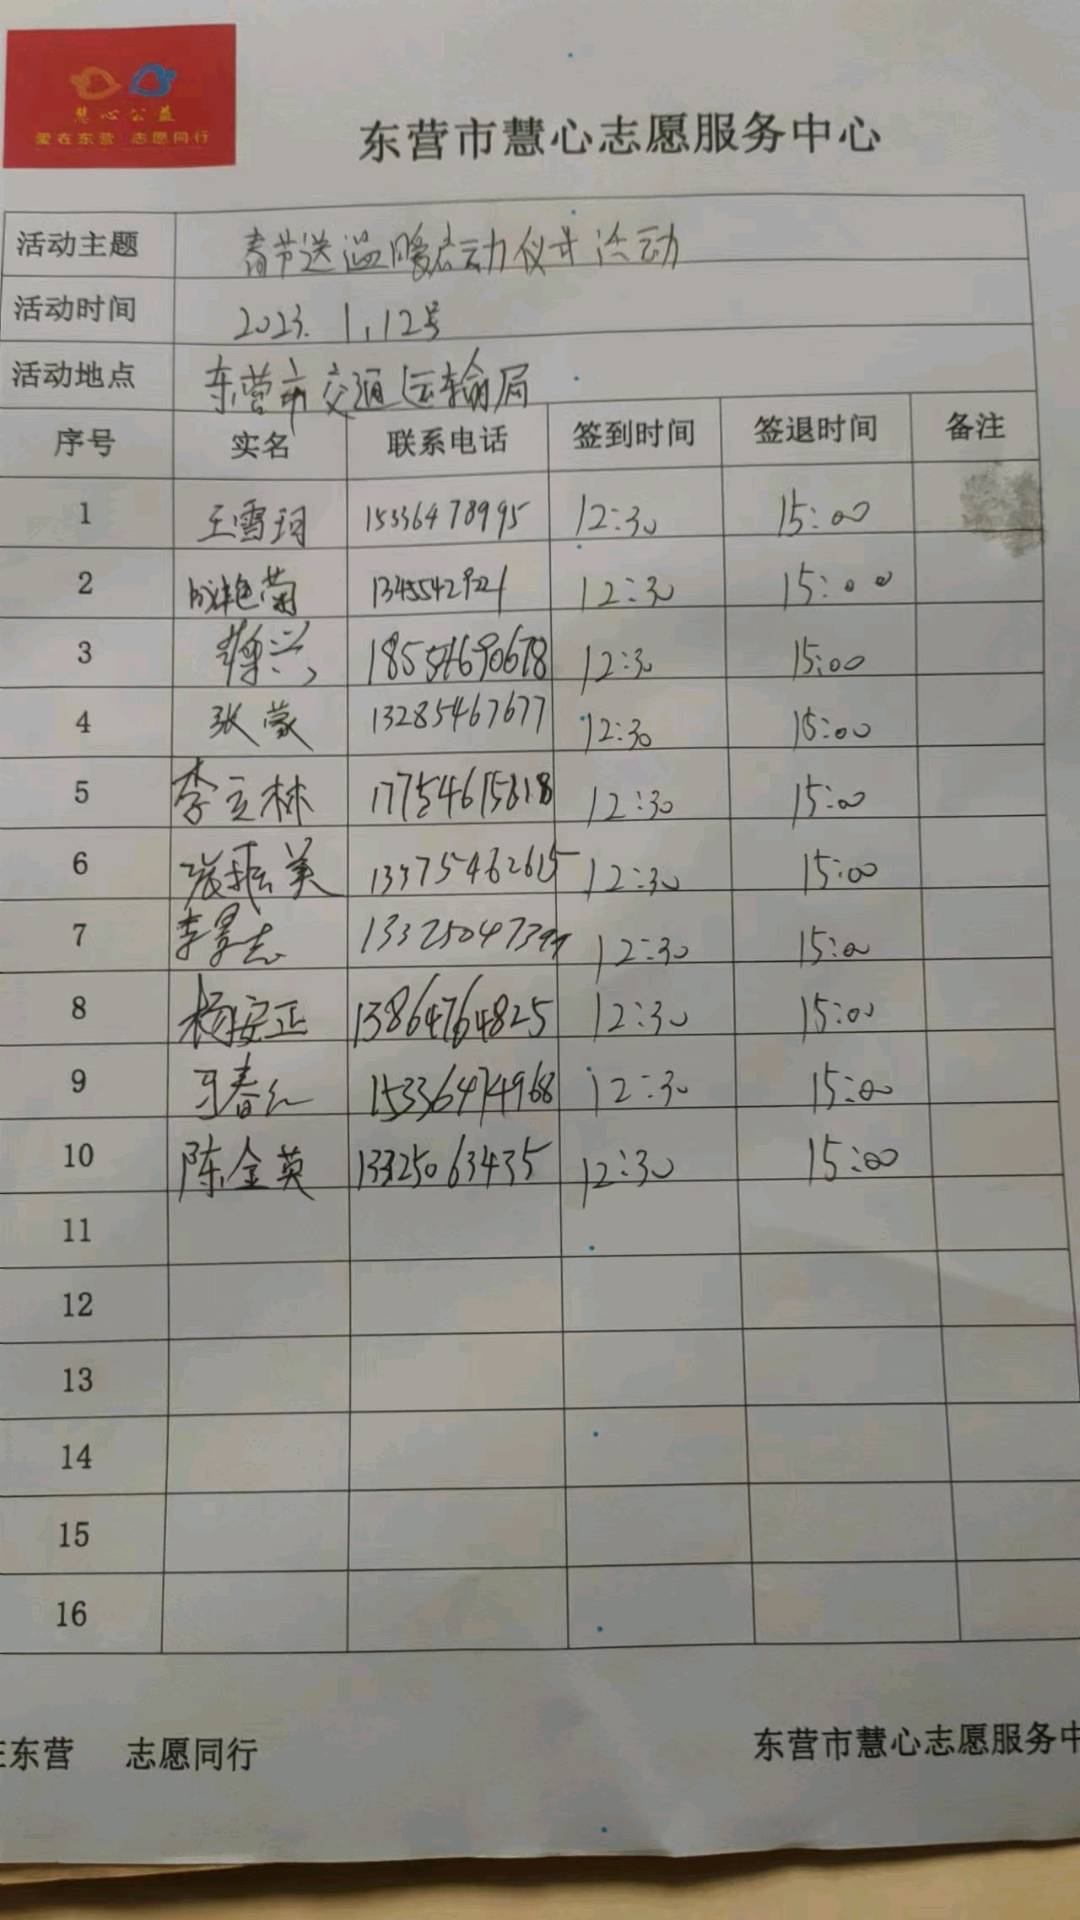 慧心公益
爱在东营 志愿同行
东营市慧心志愿服务中心
活动主题 春节送温暖启动仪式活动
活动时间 2023.1.12号
活动地点 东营市交通运输局
序号 实名 联系电话 签到时间 签退时间 备注
1 王雪珂 15336478995 12:30 15:00
2 艳菊 12:30 15:00
3 兴 12:30 15:00
4 张蒙 13285467677 12:30 15:00
5 李立林 12:30 15:00
6 张振美 12:30 15:00
7 李景志 12:30 15:00
8 杨安正 13864764825 12:30 15:00
9 马春红 15336474968 12:30 15:00
10 陈金英 13325063435 12:30 15:00
11
12
13
14
15
16
在东营 志愿同行 东营市慧心志愿服务中